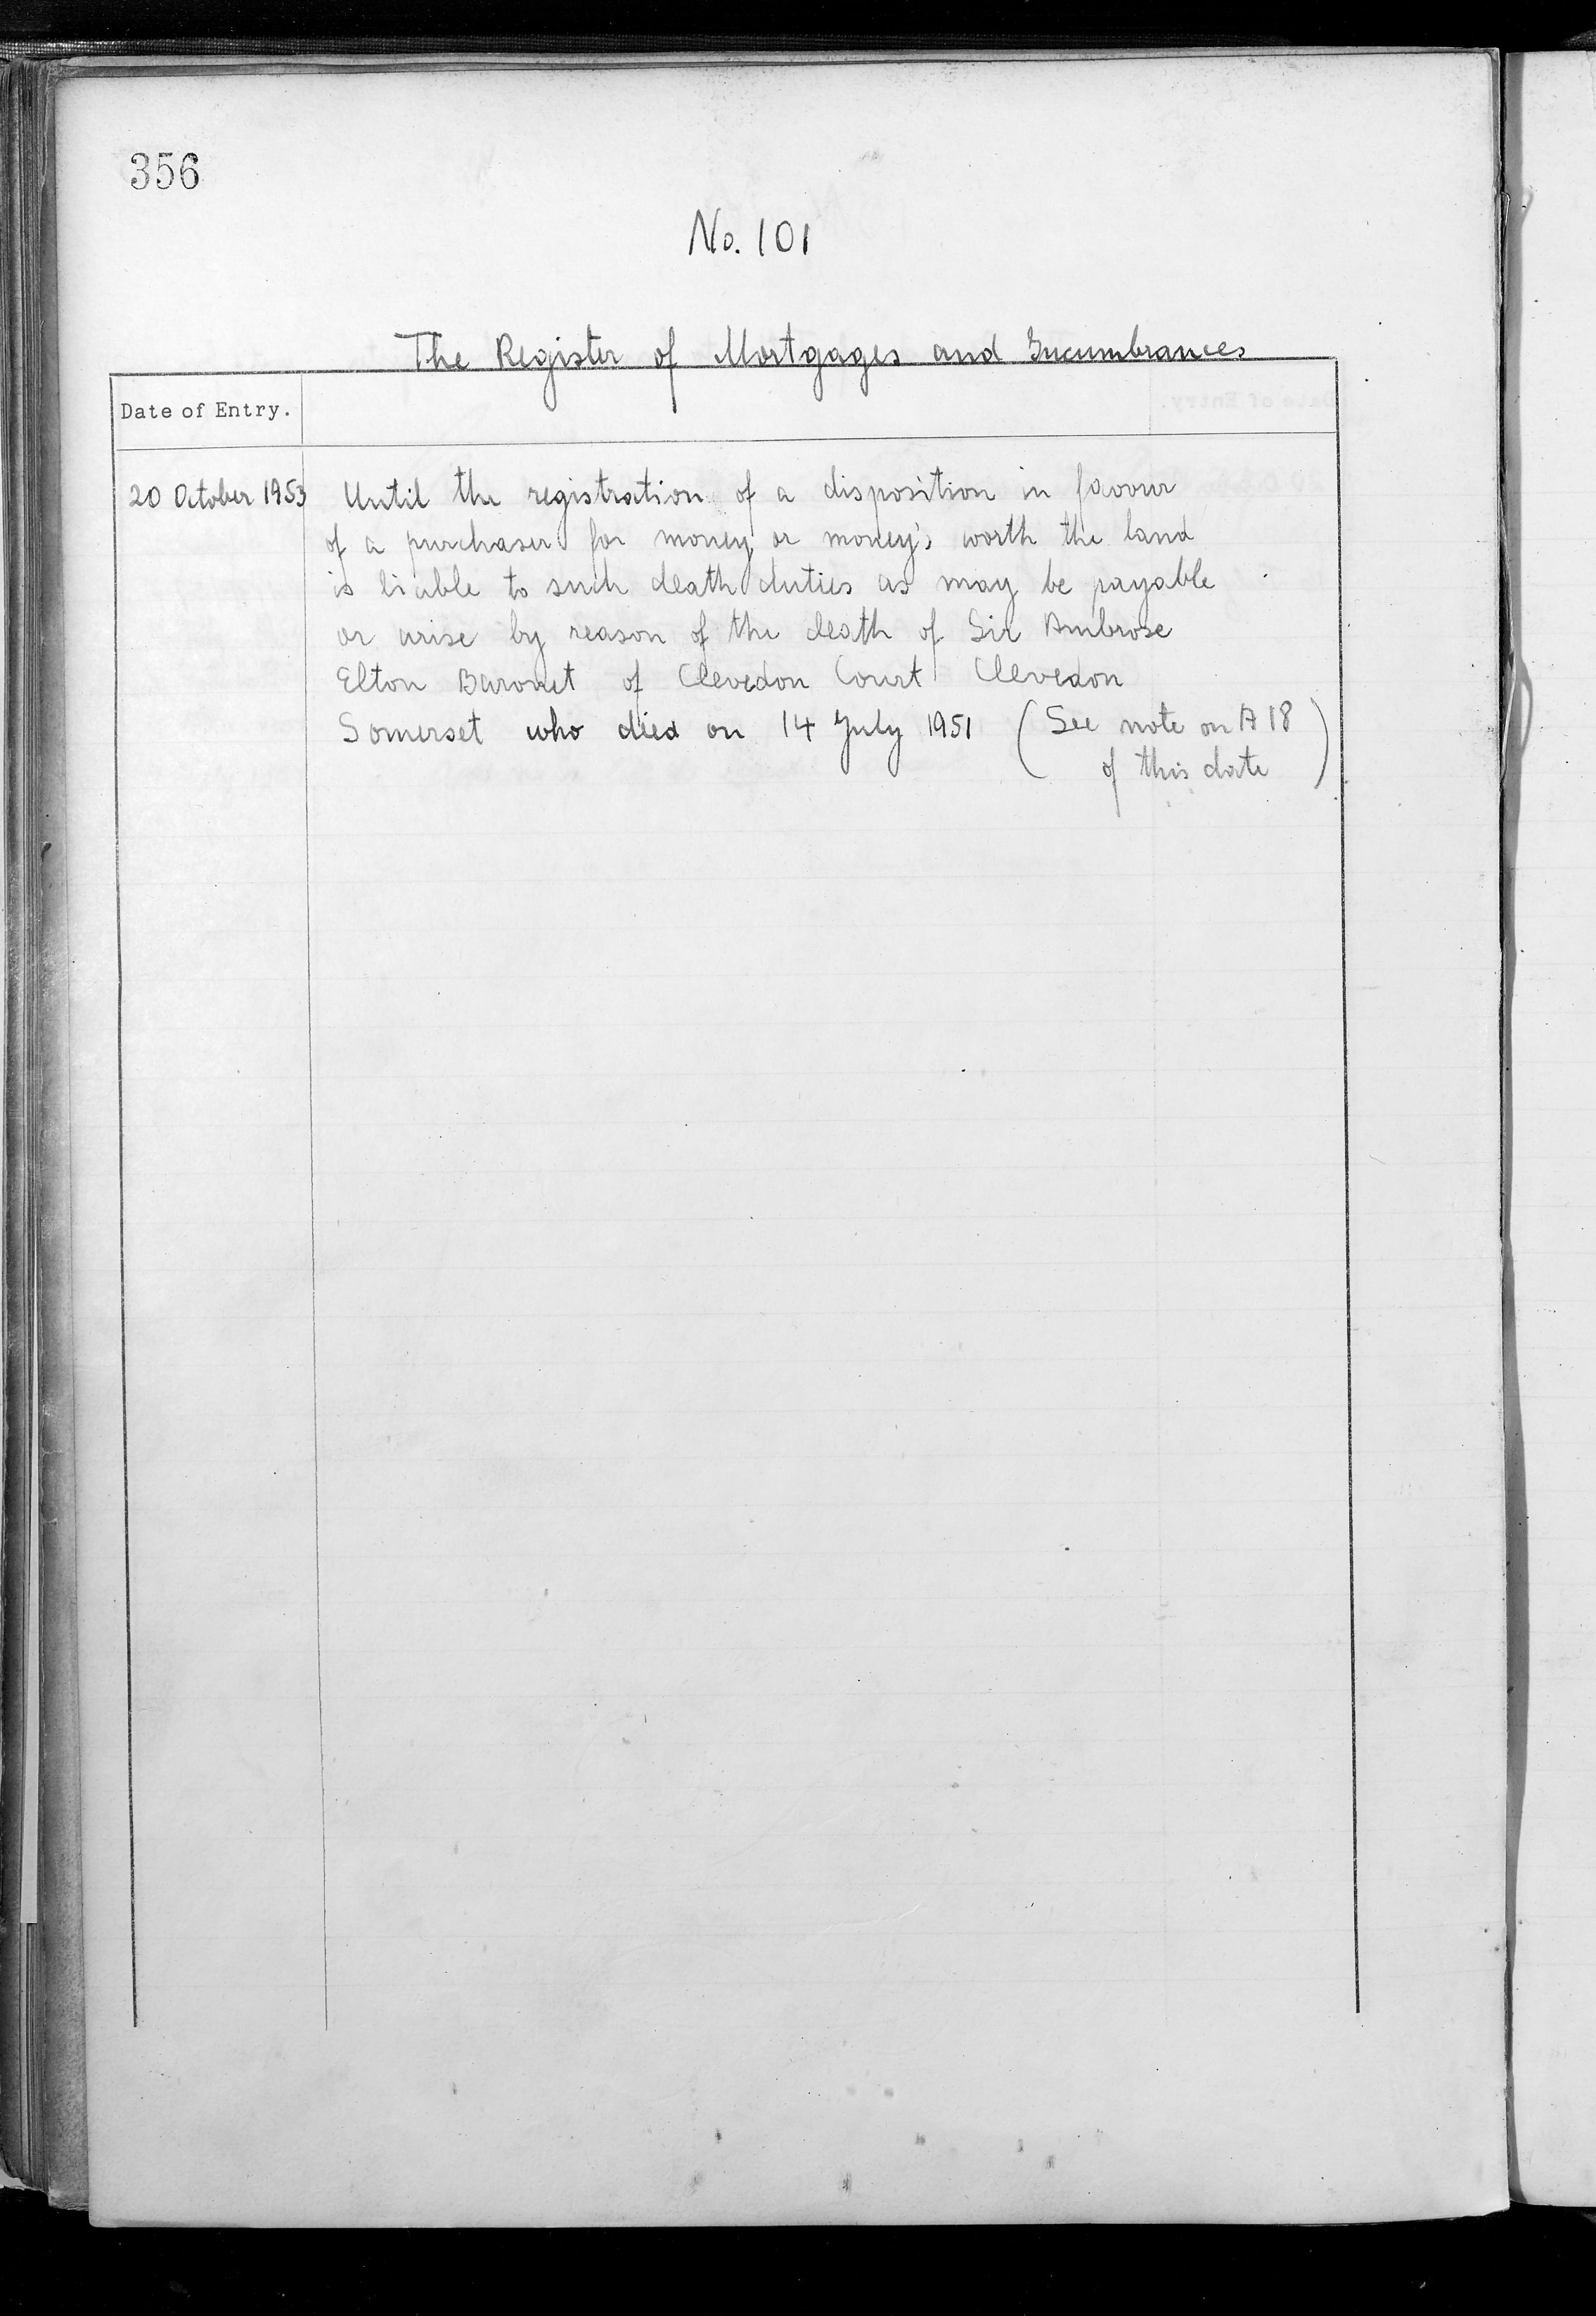 356
No. 101
The Register of Mortgages and Incumbrances
Date of Entry.
20 October 1953 Until the registration of a disposition in favour
of a purchaser for money or money's worth the land
is liable to such death duties as may be payable
or arise by reason of the death of Sir Ambrose
Elton Baronet of Clevedon Court Clevedon
Somerset who died on 14 July 1951 (See note on A 18
of this date)